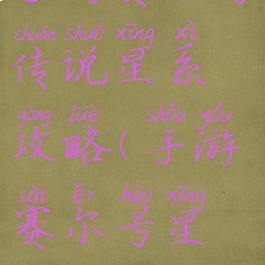 chuán shuō xīng xì
传说星系
gōng lüè shǒu yóu
攻略(手游
sài ěr hào xīng
赛尔号星